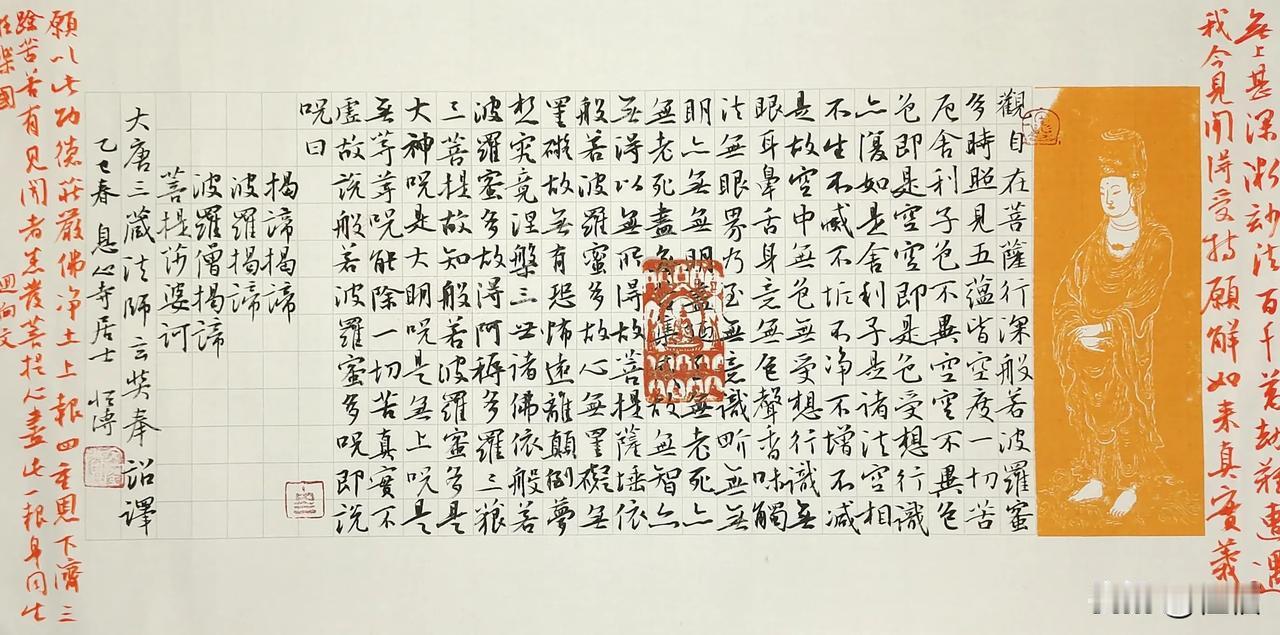 無上甚深微妙法百千萬劫難遭遇
我今見聞得受持願解如来真實義
觀自在菩薩行深般若波羅蜜
多時照見五蘊皆空度一切苦
厄舍利子色不異空空不異色
色即是空空即是色受想行識
亦復如是舍利子是諸法空相
不生不滅不垢不净不增不减
是故空中無色無受想行識無
眼耳鼻舌身意無色聲香味觸
法無眼界乃至無意識界無無
明亦無無明盡乃至無老死亦
無老死盡集滅無智亦
無得以無所得故菩提薩埵依
般若波羅蜜多故心無罣礙無
罣礙故無有恐怖遠離顛倒夢
想究竟涅槃三世諸佛依般若
波羅蜜多故得阿耨多羅三藐
三菩提故知般若波羅蜜多是
大神呪是大明呪是無上呪是
無等等呪能除一切苦真實不
虛故說般若波羅蜜多呪即說
呪曰
揭諦揭諦
波羅揭諦
波羅僧揭諦
菩提莎婆訶
大唐三藏法師玄奘奉 詔譯
乙巳春 息心寺居士
願以此功德莊嚴佛净土上報四重恩下濟三
苦若有見聞者悉發菩提心盡此一報身同生
極樂國 回向文